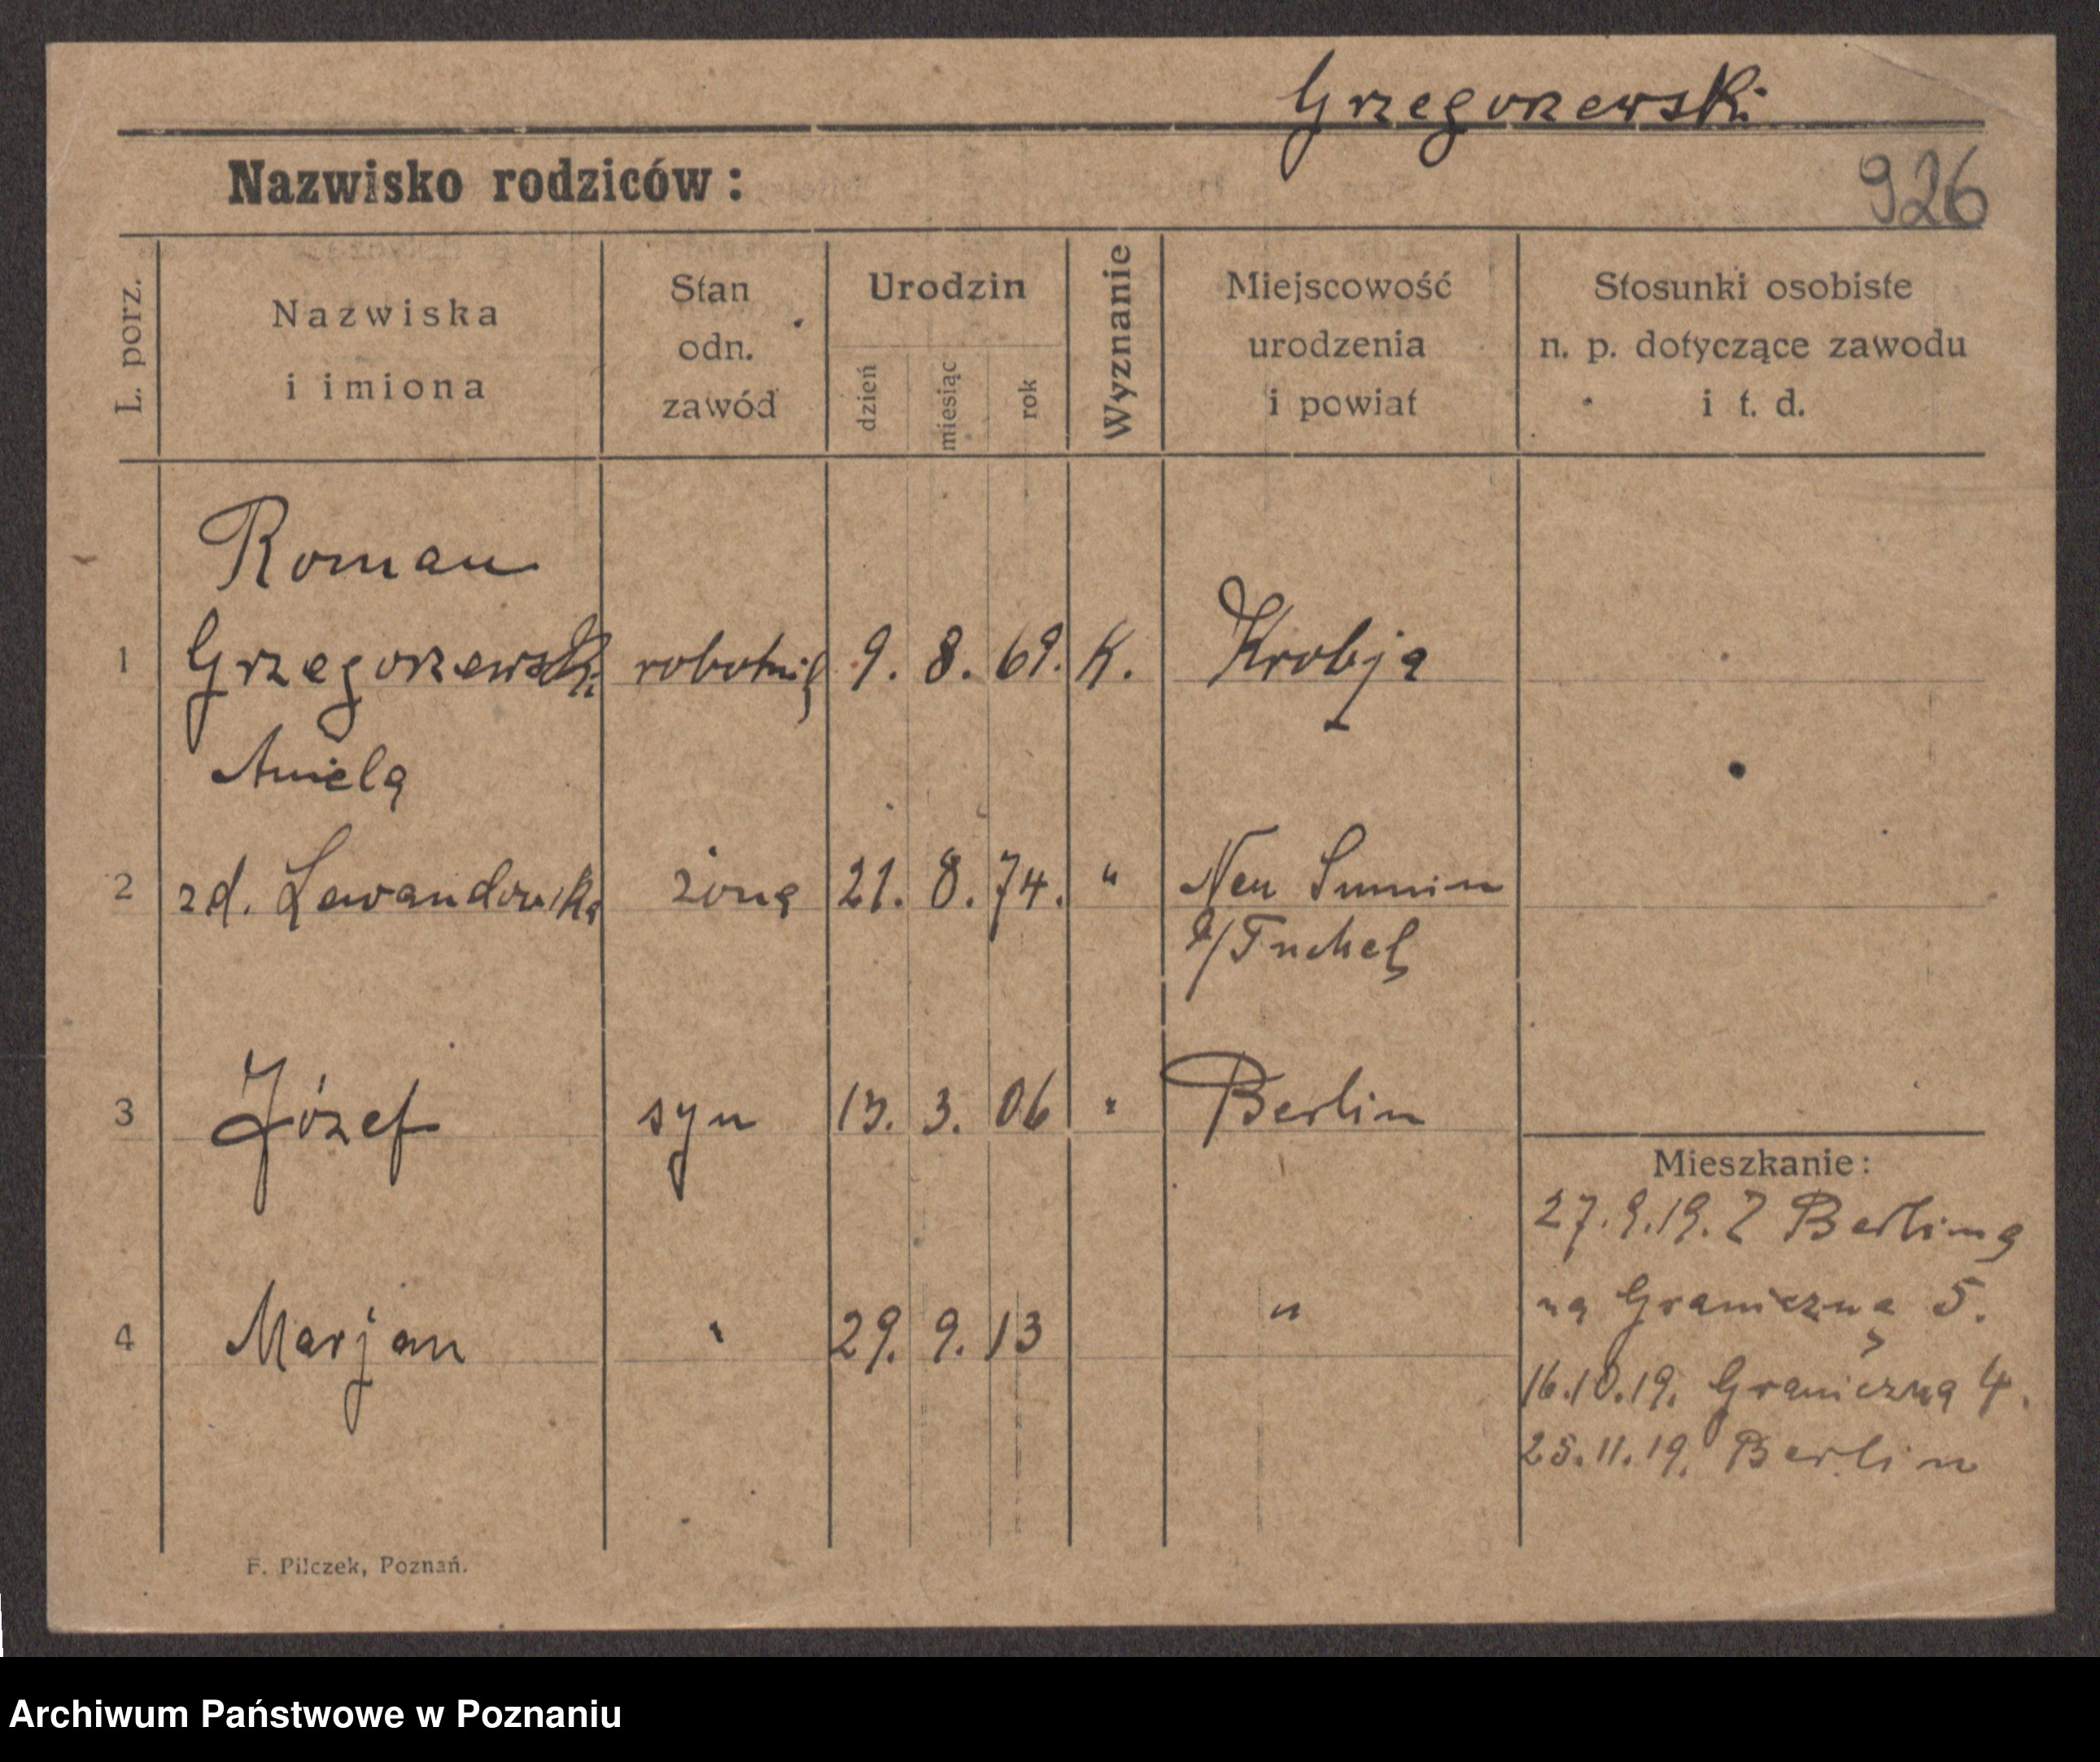 Grzegorzewski
Nazwisko rodziców:
926
L. porz.
Nazwiska
i imiona
Stan
odn.
zawód
Urodzin
dzień
miesiąc
rok
Wyznanie
Miejscowość
urodzenia
i powiat
Stosunki osobiste
n. p. dotyczące zawodu
i t. d.
Roman
1 Grzegorzewski robotnik 9. 8. 69. K. Krobja
Aniela
2 zd. Lewandowska żona 21. 8. 74. " Neu Summin
a/Tuchel
3 Józef syn 13. 3. 06 " Berlin
Mieszkanie:
27.9.19. Z Berlina
na Graniczną 5.
4 Marjan " 29. 9. 13 "
16.10.19. Graniczna 4.
25.11.19. Berlin
F. Pilczek, Poznań.
Archiwum Państwowe w Poznaniu